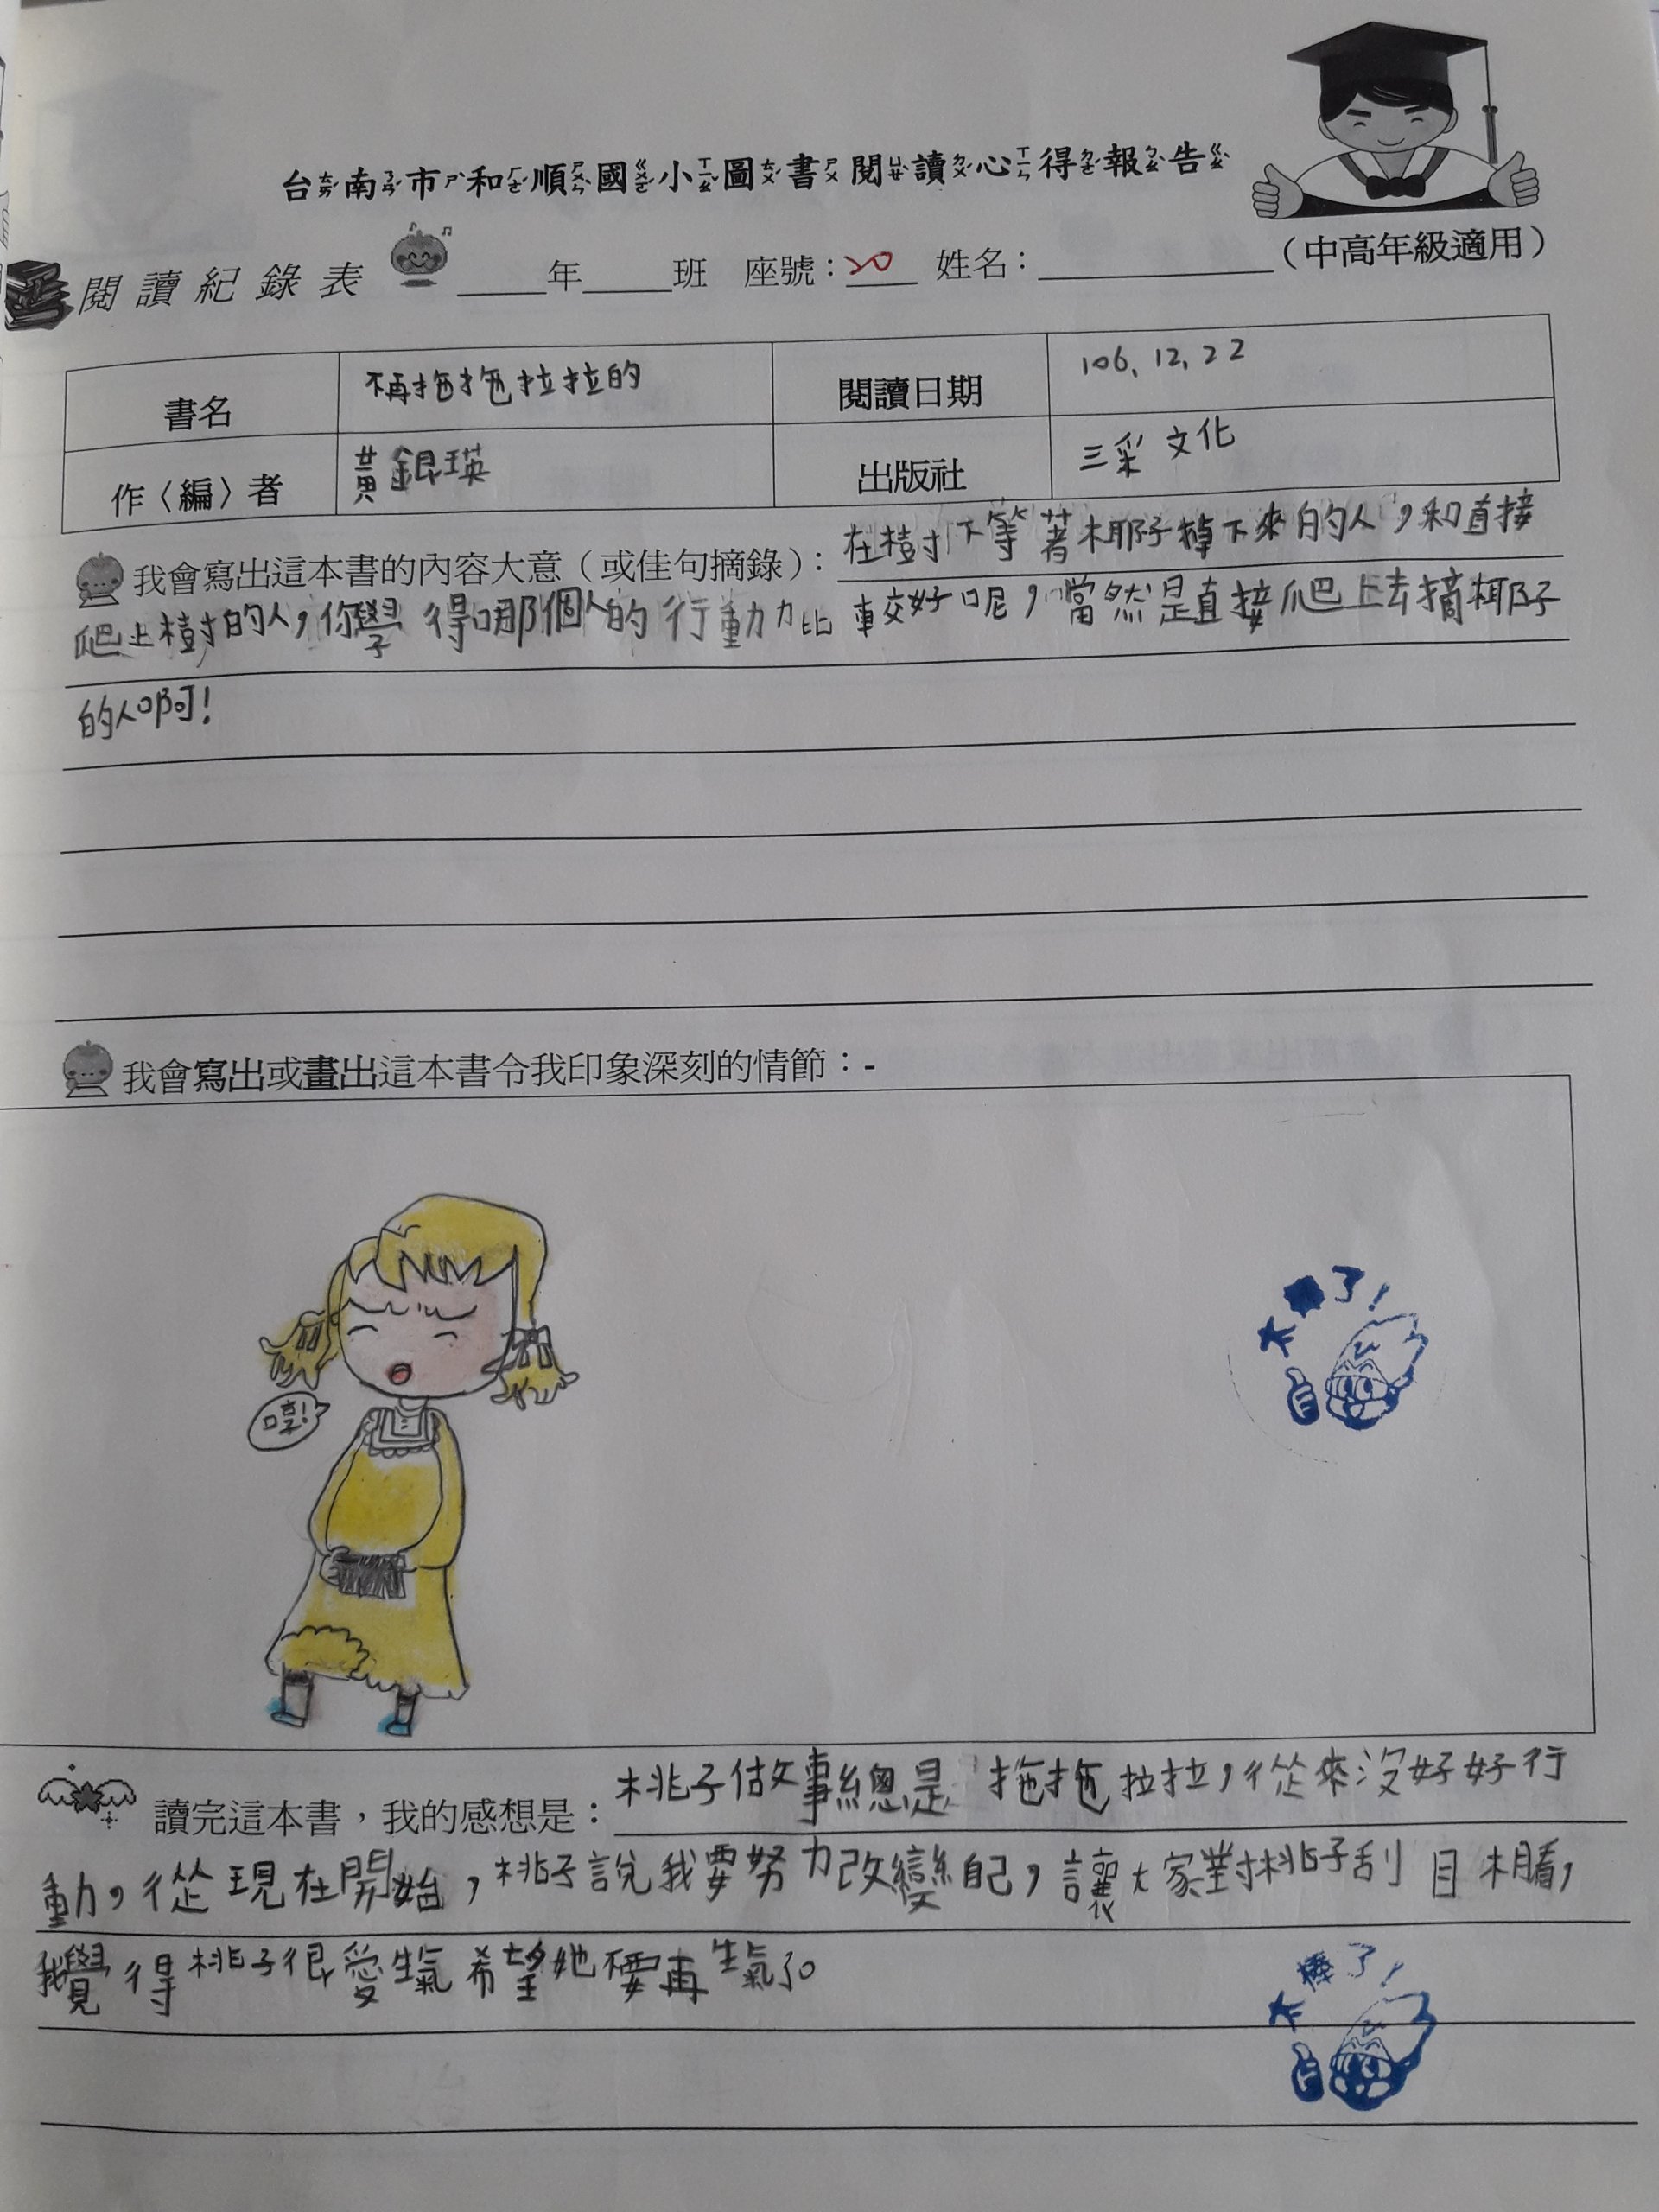 台南市和順國小圖書閱讀心得報告
閱讀紀錄表 ____年____班 座號：20 姓名：________ （中高年級適用）
書名 不再拖拖拉拉的 閱讀日期 106.12.22
作〈編〉者 黃銀瑛 出版社 三采文化
我會寫出這本書的內容大意（或佳句摘錄）：在樹下等著椰子掉下來的人，和直接
爬上樹的人，你覺得哪個人的行動力比較好呢，當然是直接爬上去摘椰子
的人啊！
我會寫出或畫出這本書令我印象深刻的情節：-
太棒了！
哼！
讀完這本書，我的感想是：桃子做事總是拖拖拉拉，從來沒好好行
動，從現在開始，桃子說我要努力改變自己，讓大家對桃子刮目相看，
我覺得桃子很愛生氣希望她不要再生氣了。
太棒了！